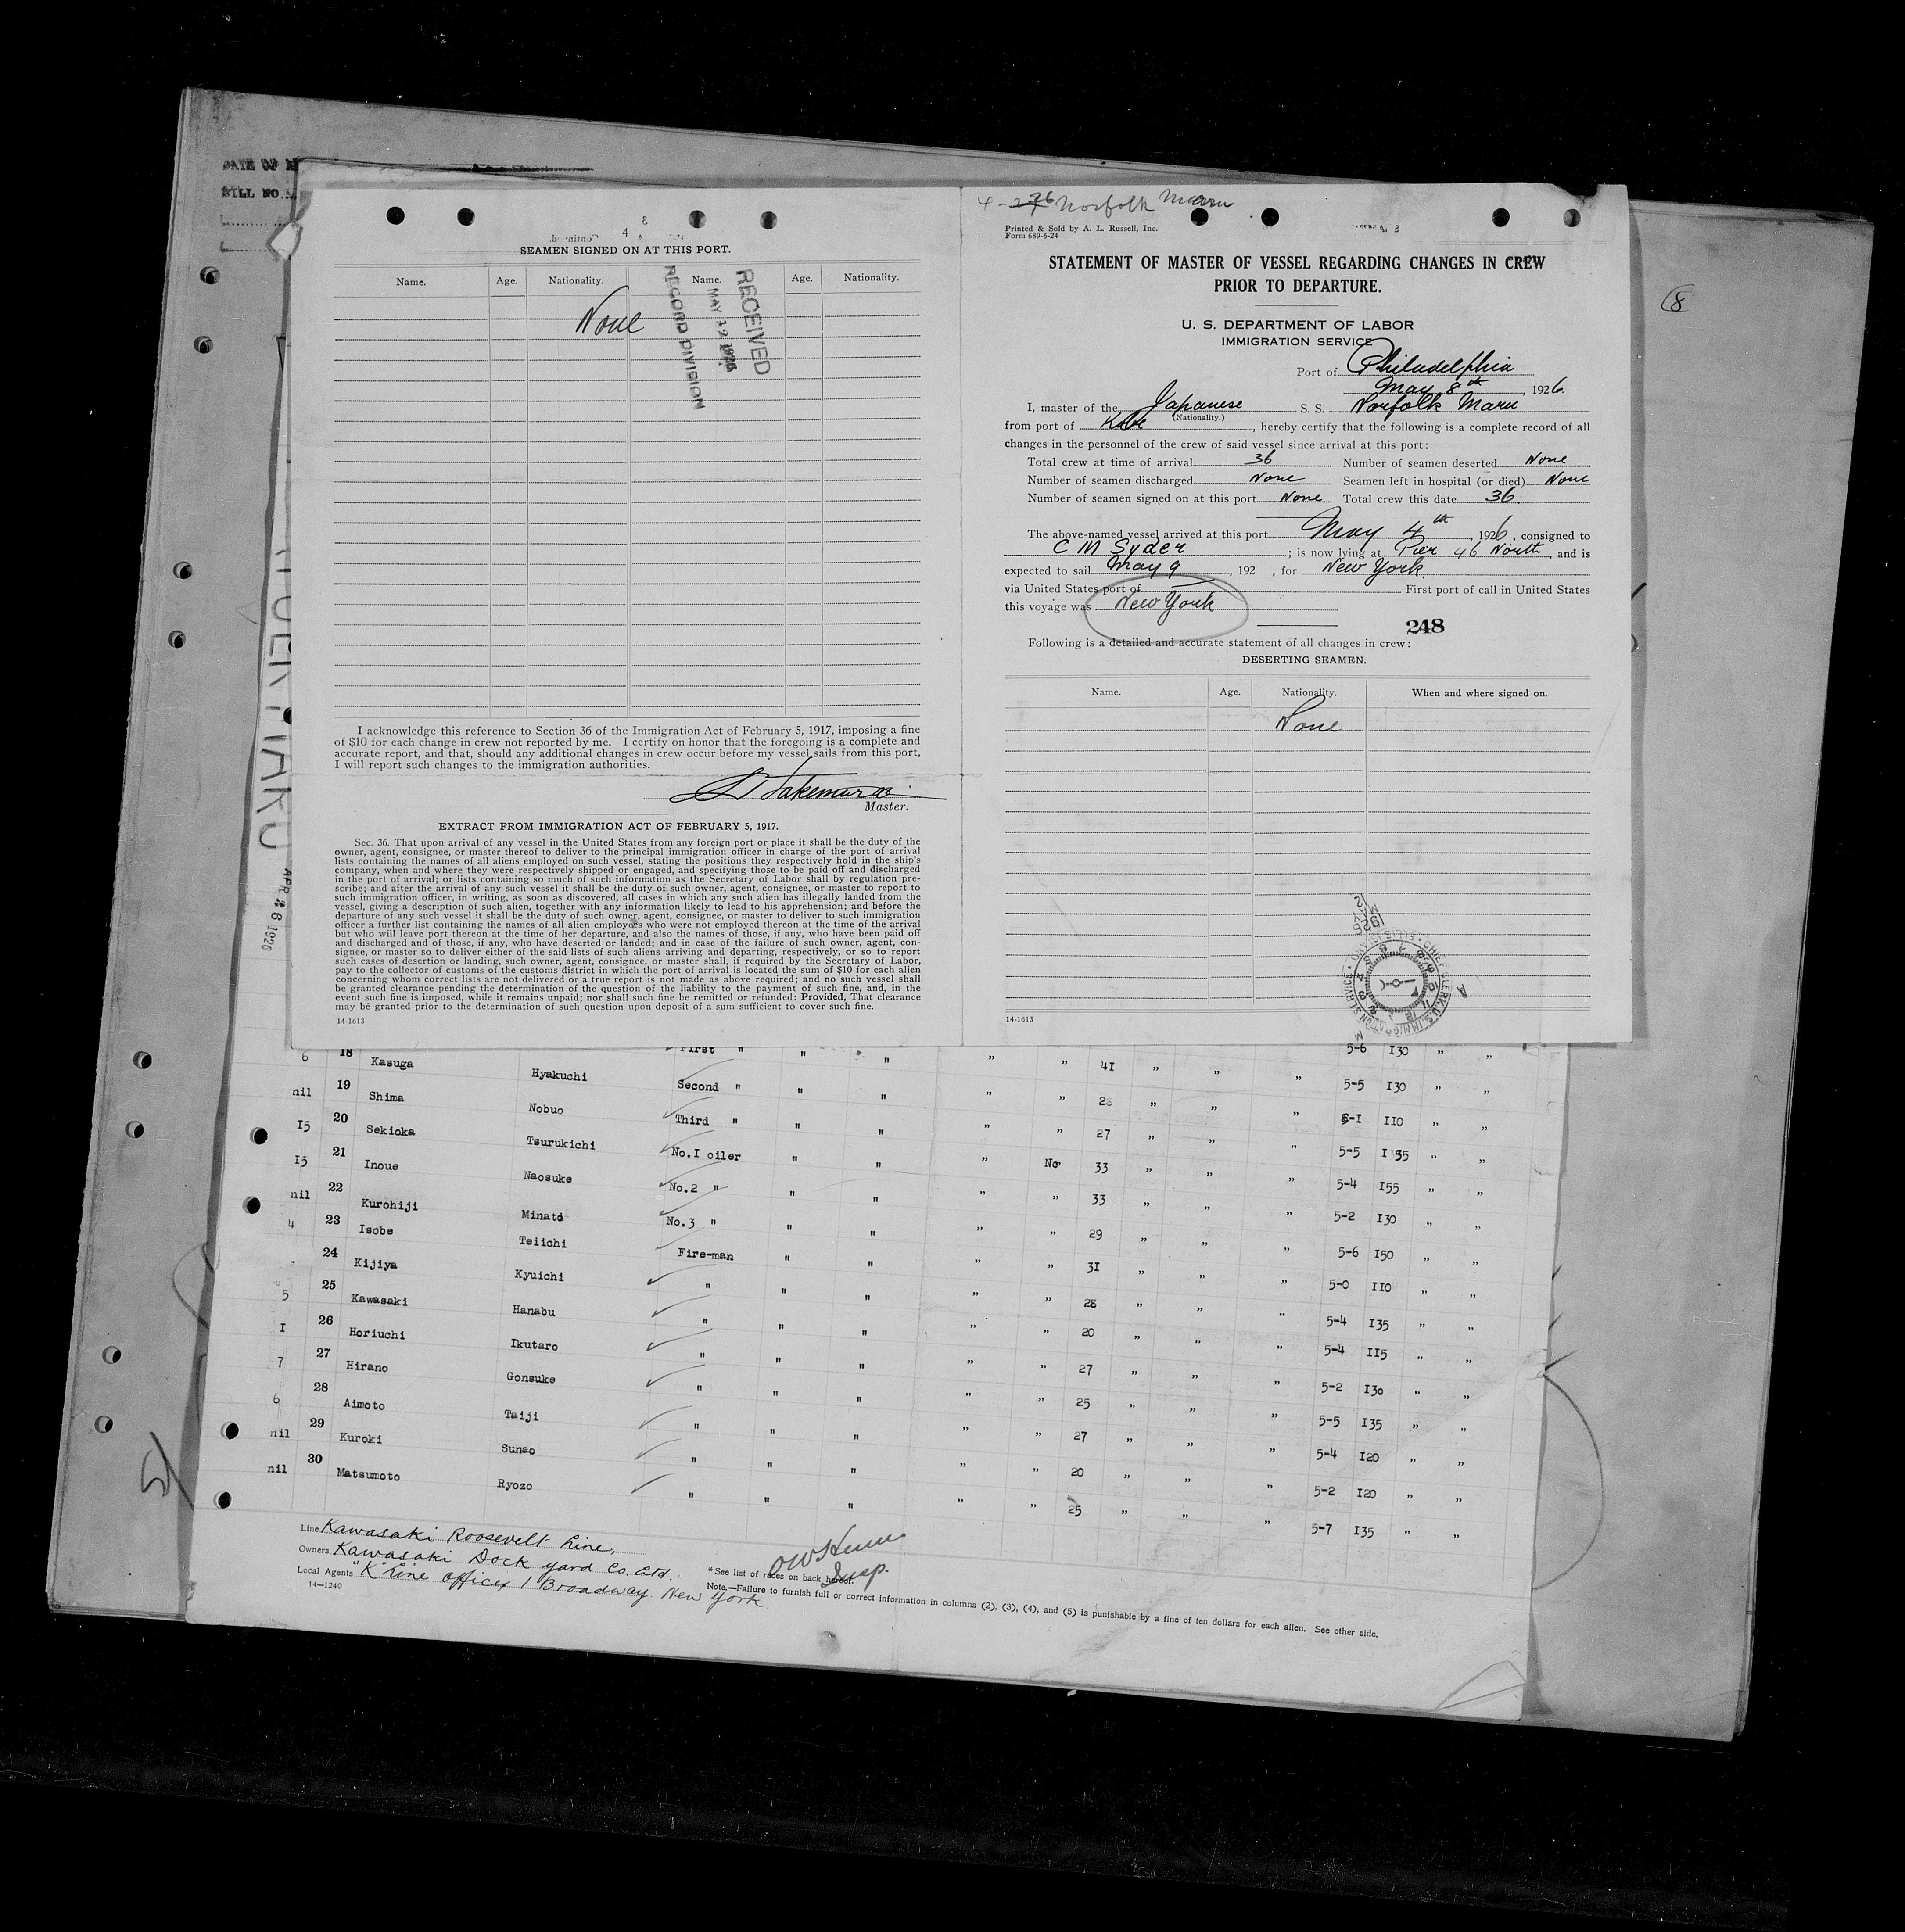 DATE OF
BILL NO.
8
4
SEAMEN SIGNED ON AT THIS PORT.
Name. Age. Nationality. Name. Age. Nationality.
None
RECEIVED
MAY 12 1926
RECORD DIVISION
I acknowledge this reference to Section 36 of the Immigration Act of February 5, 1917, imposing a fine
of $10 for each change in crew not reported by me. I certify on honor that the foregoing is a complete and
accurate report, and that, should any additional changes in crew occur before my vessel sails from this port,
I will report such changes to the immigration authorities.
Takemura
Master.
EXTRACT FROM IMMIGRATION ACT OF FEBRUARY 5, 1917.
Sec. 36. That upon arrival of any vessel in the United States from any foreign port or place it shall be the duty of the
owner, agent, consignee, or master thereof to deliver to the principal immigration officer in charge of the port of arrival
lists containing the names of all aliens employed on such vessel, stating the positions they respectively hold in the ship's
company, when and where they were respectively shipped or engaged, and specifying those to be paid off and discharged
in the port of arrival; or lists containing so much of such information as the Secretary of Labor shall by regulation pre-
scribe; and after the arrival of any such vessel it shall be the duty of such owner, agent, consignee, or master to report to
such immigration officer, in writing, as soon as discovered, all cases in which any such alien has illegally landed from the
vessel, giving a description of such alien, together with any information likely to lead to his apprehension; and before the
departure of any such vessel it shall be the duty of such owner, agent, consignee, or master to deliver to such immigration
officer a further list containing the names of all alien employees who were not employed thereon at the time of the arrival
but who will leave port thereon at the time of her departure, and also the names of those, if any, who have been paid off
and discharged and of those, if any, who have deserted or landed; and in case of the failure of such owner, agent, con-
signee, or master so to deliver either of the said lists of such aliens arriving and departing, respectively, or so to report
such cases of desertion or landing, such owner, agent, consignee, or master shall, if required by the Secretary of Labor,
pay to the collector of customs of the customs district in which the port of arrival is located the sum of $10 for each alien
concerning whom correct lists are not delivered or a true report is not made as above required; and no such vessel shall
be granted clearance pending the determination of the question of the liability to the payment of such fine, and, in the
event such fine is imposed, while it remains unpaid; nor shall such fine be remitted or refunded: Provided, That clearance
may be granted prior to the determination of such question upon deposit of a sum sufficient to cover such fine.
14-1613
Norfolk Maru
Printed & Sold by A. L. Russell, Inc.
Form 689-6-24
STATEMENT OF MASTER OF VESSEL REGARDING CHANGES IN CREW
PRIOR TO DEPARTURE.
U. S. DEPARTMENT OF LABOR
IMMIGRATION SERVICE
Port of Philadelphia
May 8th, 1926.
I, master of the Japanese S. S. Norfolk Maru
(Nationality.)
from port of Kobe, hereby certify that the following is a complete record of all
changes in the personnel of the crew of said vessel since arrival at this port:
Total crew at time of arrival 36 Number of seamen deserted None
Number of seamen discharged None Seamen left in hospital (or died) None
Number of seamen signed on at this port None Total crew this date 36.
The above-named vessel arrived at this port May 4th, 1926, consigned to
C M Syder; is now lying at Pier 46 North, and is
expected to sail May 9, 192 , for New York.
via United States port of First port of call in United States
this voyage was New York
248
Following is a detailed and accurate statement of all changes in crew:
DESERTING SEAMEN.
Name. Age. Nationality. When and where signed on.
None
1926
14-1613
APR 26 1926
6 18 Kasuga Hyakuchi First " " " " " 41 " " " 5-6 I30 " "
nil 19 Shima Nobuo Second " " " " " 28 " " " 5-5 I30 " "
I5 20 Sekioka Tsurukichi Third " " " " " 27 " " " 5-I II0 " "
I5 21 Inoue Naosuke No.I oiler " " " No 33 " " " 5-5 I35 " "
nil 22 Kurohiji Minato No.2 " " " " " 33 " " " 5-4 I55 " "
4 23 Isobe Teiichi No.3 " " " " " 29 " " " 5-2 I30 " "
24 Kijiya Kyuichi Fire-man " " " " 3I " " " 5-6 I50 " "
5 25 Kawasaki Hanabu " " " " " 28 " " " 5-0 II0 " "
I 26 Horiuchi Ikutaro " " " " " 20 " " " 5-4 I35 " "
7 27 Hirano Gonsuke " " " " " 27 " " " 5-4 II5 " "
6 28 Aimoto Taiji " " " " " 25 " " " 5-2 I30 " "
nil 29 Kuroki Sunao " " " " " 27 " " " 5-5 I35 " "
nil 30 Matsumoto Ryozo " " " " " 20 " " " 5-4 I20 " "
" " " " " 25 " " " 5-2 I20 " "
5-7 I35 " "
Line Kawasaki Roosevelt Line.
Owners Kawasaki Dock yard Co. Ltd.
Local Agents "K" Line office 1 Broadway New York
14-1240
Insp.
*See list of races on back hereof.
Note.—Failure to furnish full or correct information in columns (2), (3), (4), and (5) is punishable by a fine of ten dollars for each alien. See other side.
5